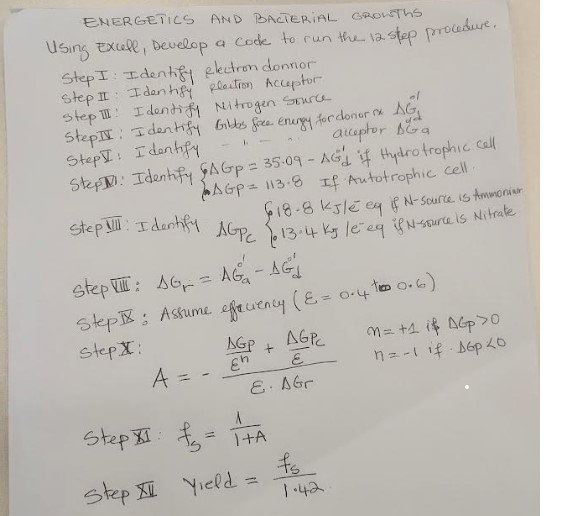 ENERGETICS AND BACTERIAL GROWTHS
Using Excell, Develop a Code to run the 12 step procedure.
Step I: Identify electron donnor
Step II: Identify electron Acceptor
Step III: Identify Nitrogen Source
Step IV: Identify Gibbs free energy for donor rx ΔG°'d
Step V: Identify " " " acceptor ΔG°'a
Step VI: Identify { ΔGp = 35.09 - ΔG°'d if Hydrotrophic cell
ΔGp = 113.8 If Autotrophic cell
Step VII: Identify ΔGpc { 18.8 kJ/e⁻eq if N-source is Ammonium
13.4 kJ/e⁻eq if N-source is Nitrate
Step VIII: ΔGr = ΔG°'a - ΔG°'d
Step IX: Assume efficiency (ε = 0.4 to 0.6)
Step X: A = - (ΔGp/εⁿ + ΔGpc/ε) / (ε · ΔGr)
n = +1 if ΔGp > 0
n = -1 if ΔGp < 0
Step XI: fs = 1/(1+A)
Step XII Yield = fs/1.42